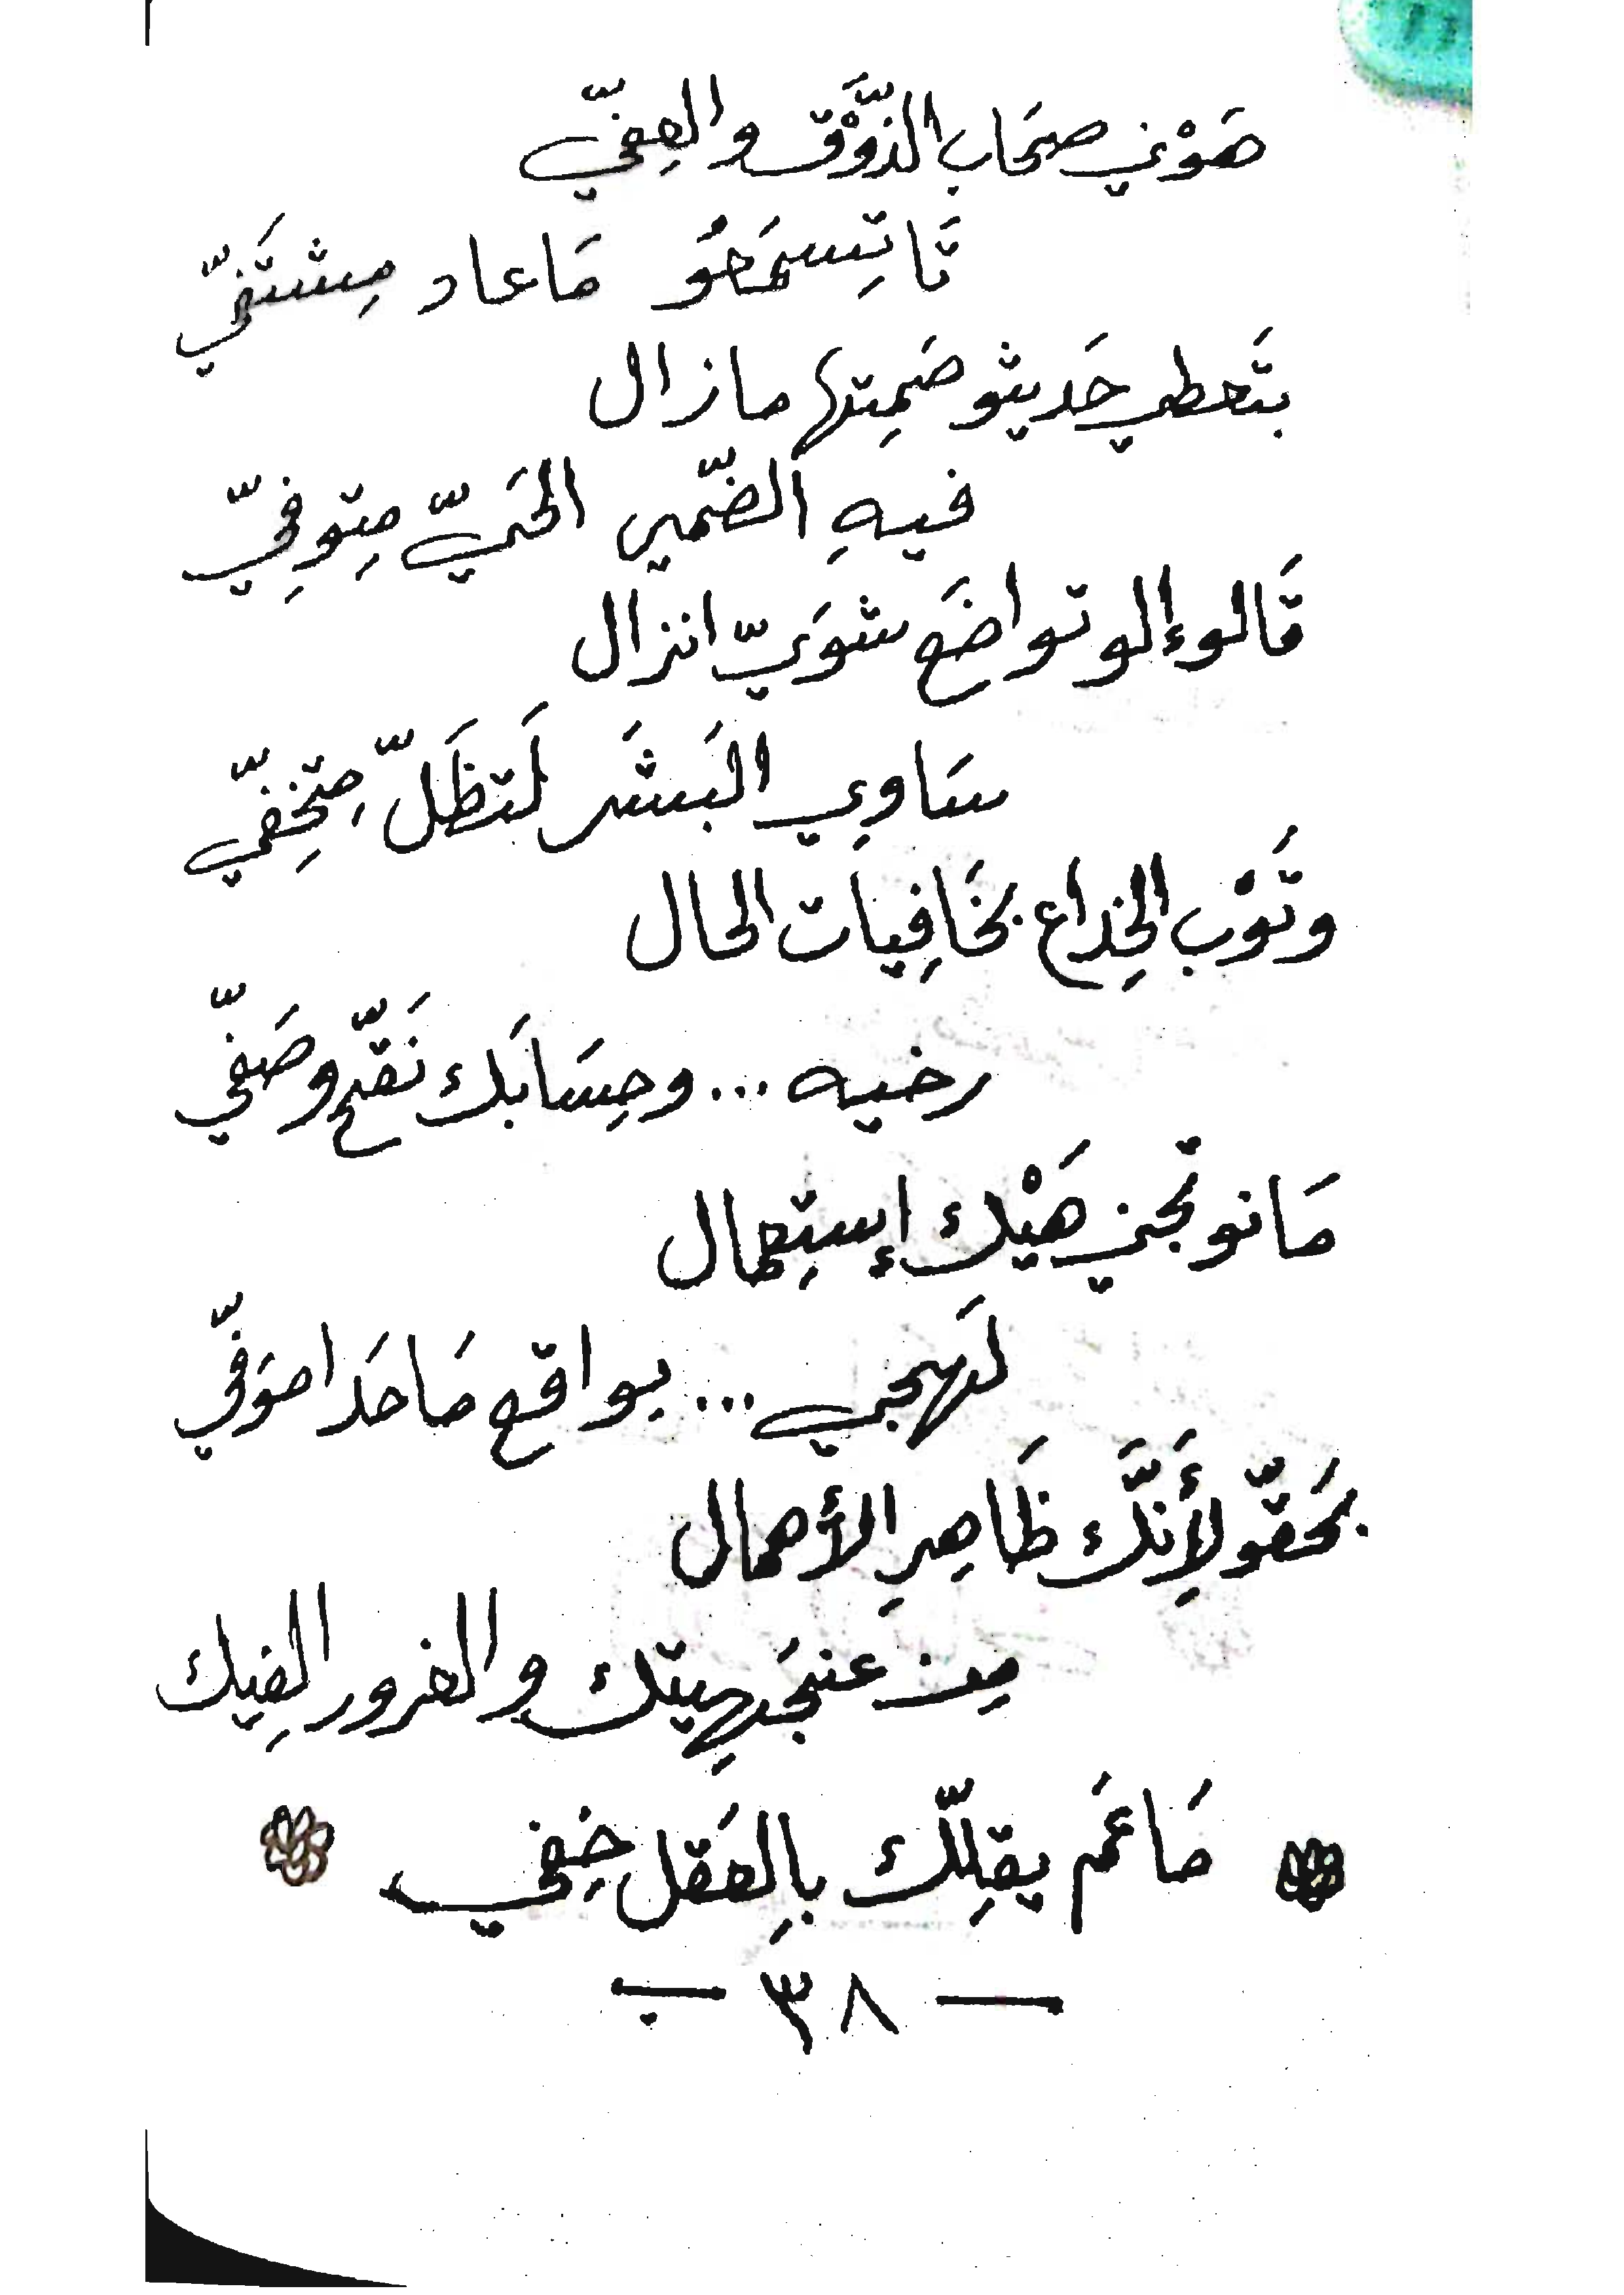 هَوْني صحَاب الذَّوْق والعِفّي
تَا تِسمَحُو مَا عاد مِشتَفّي
بتَعطي حَديثو ضمِتها ما زال
فيهِ الضّمير الحَيّ مِتوفِيّ
قَالوا إلو تواضَع شوَيّ انزال
سَاوِي البَشَر لَتظَلّ مِتخِفّي
وتَوْب الخِداع بخَافِيات الحال
رخيه ... وحِسَابَك نَقّح وصَفّي
مَانو تجني هَيْك إستِعمال
لَهجي ... بواقع مَا حَدا موَفّي
بحَقّو لأِنَّك ظَاهِرِ الأهمال
مِن عنجَهِيتك والغرور الفِيك
مَا عَم يقلِلّك بالِعَقل خِفي
- ٣٨ -